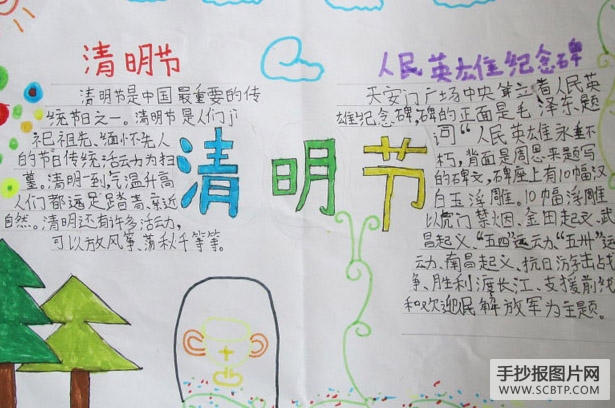 清明节
清明节是中国最重要的传
统节日之一。清明节是人们
祀祖先、缅怀先人
的节日传统活动为扫
墓。清明一到,气温升高
人们都远足踏青,亲近
自然。清明还有许多活动,
可以放风筝,荡秋千等等。
清明节
人民英雄纪念碑
天安门广场中央耸立着人民英
雄纪念碑,碑的正面是毛泽东题
词“人民英雄永垂不
朽,背面是周恩来题写
的碑文,碑座上有10幅汉
白玉浮雕。10幅浮雕
以虎门禁烟、金田起义、武
昌起义、“五四”运动、“五卅”运
动、南昌起义、抗日游击战
争、胜利渡长江、支援前线
和欢迎民解放军为主题。
手抄报图片网
WWW.SCBTP.COM